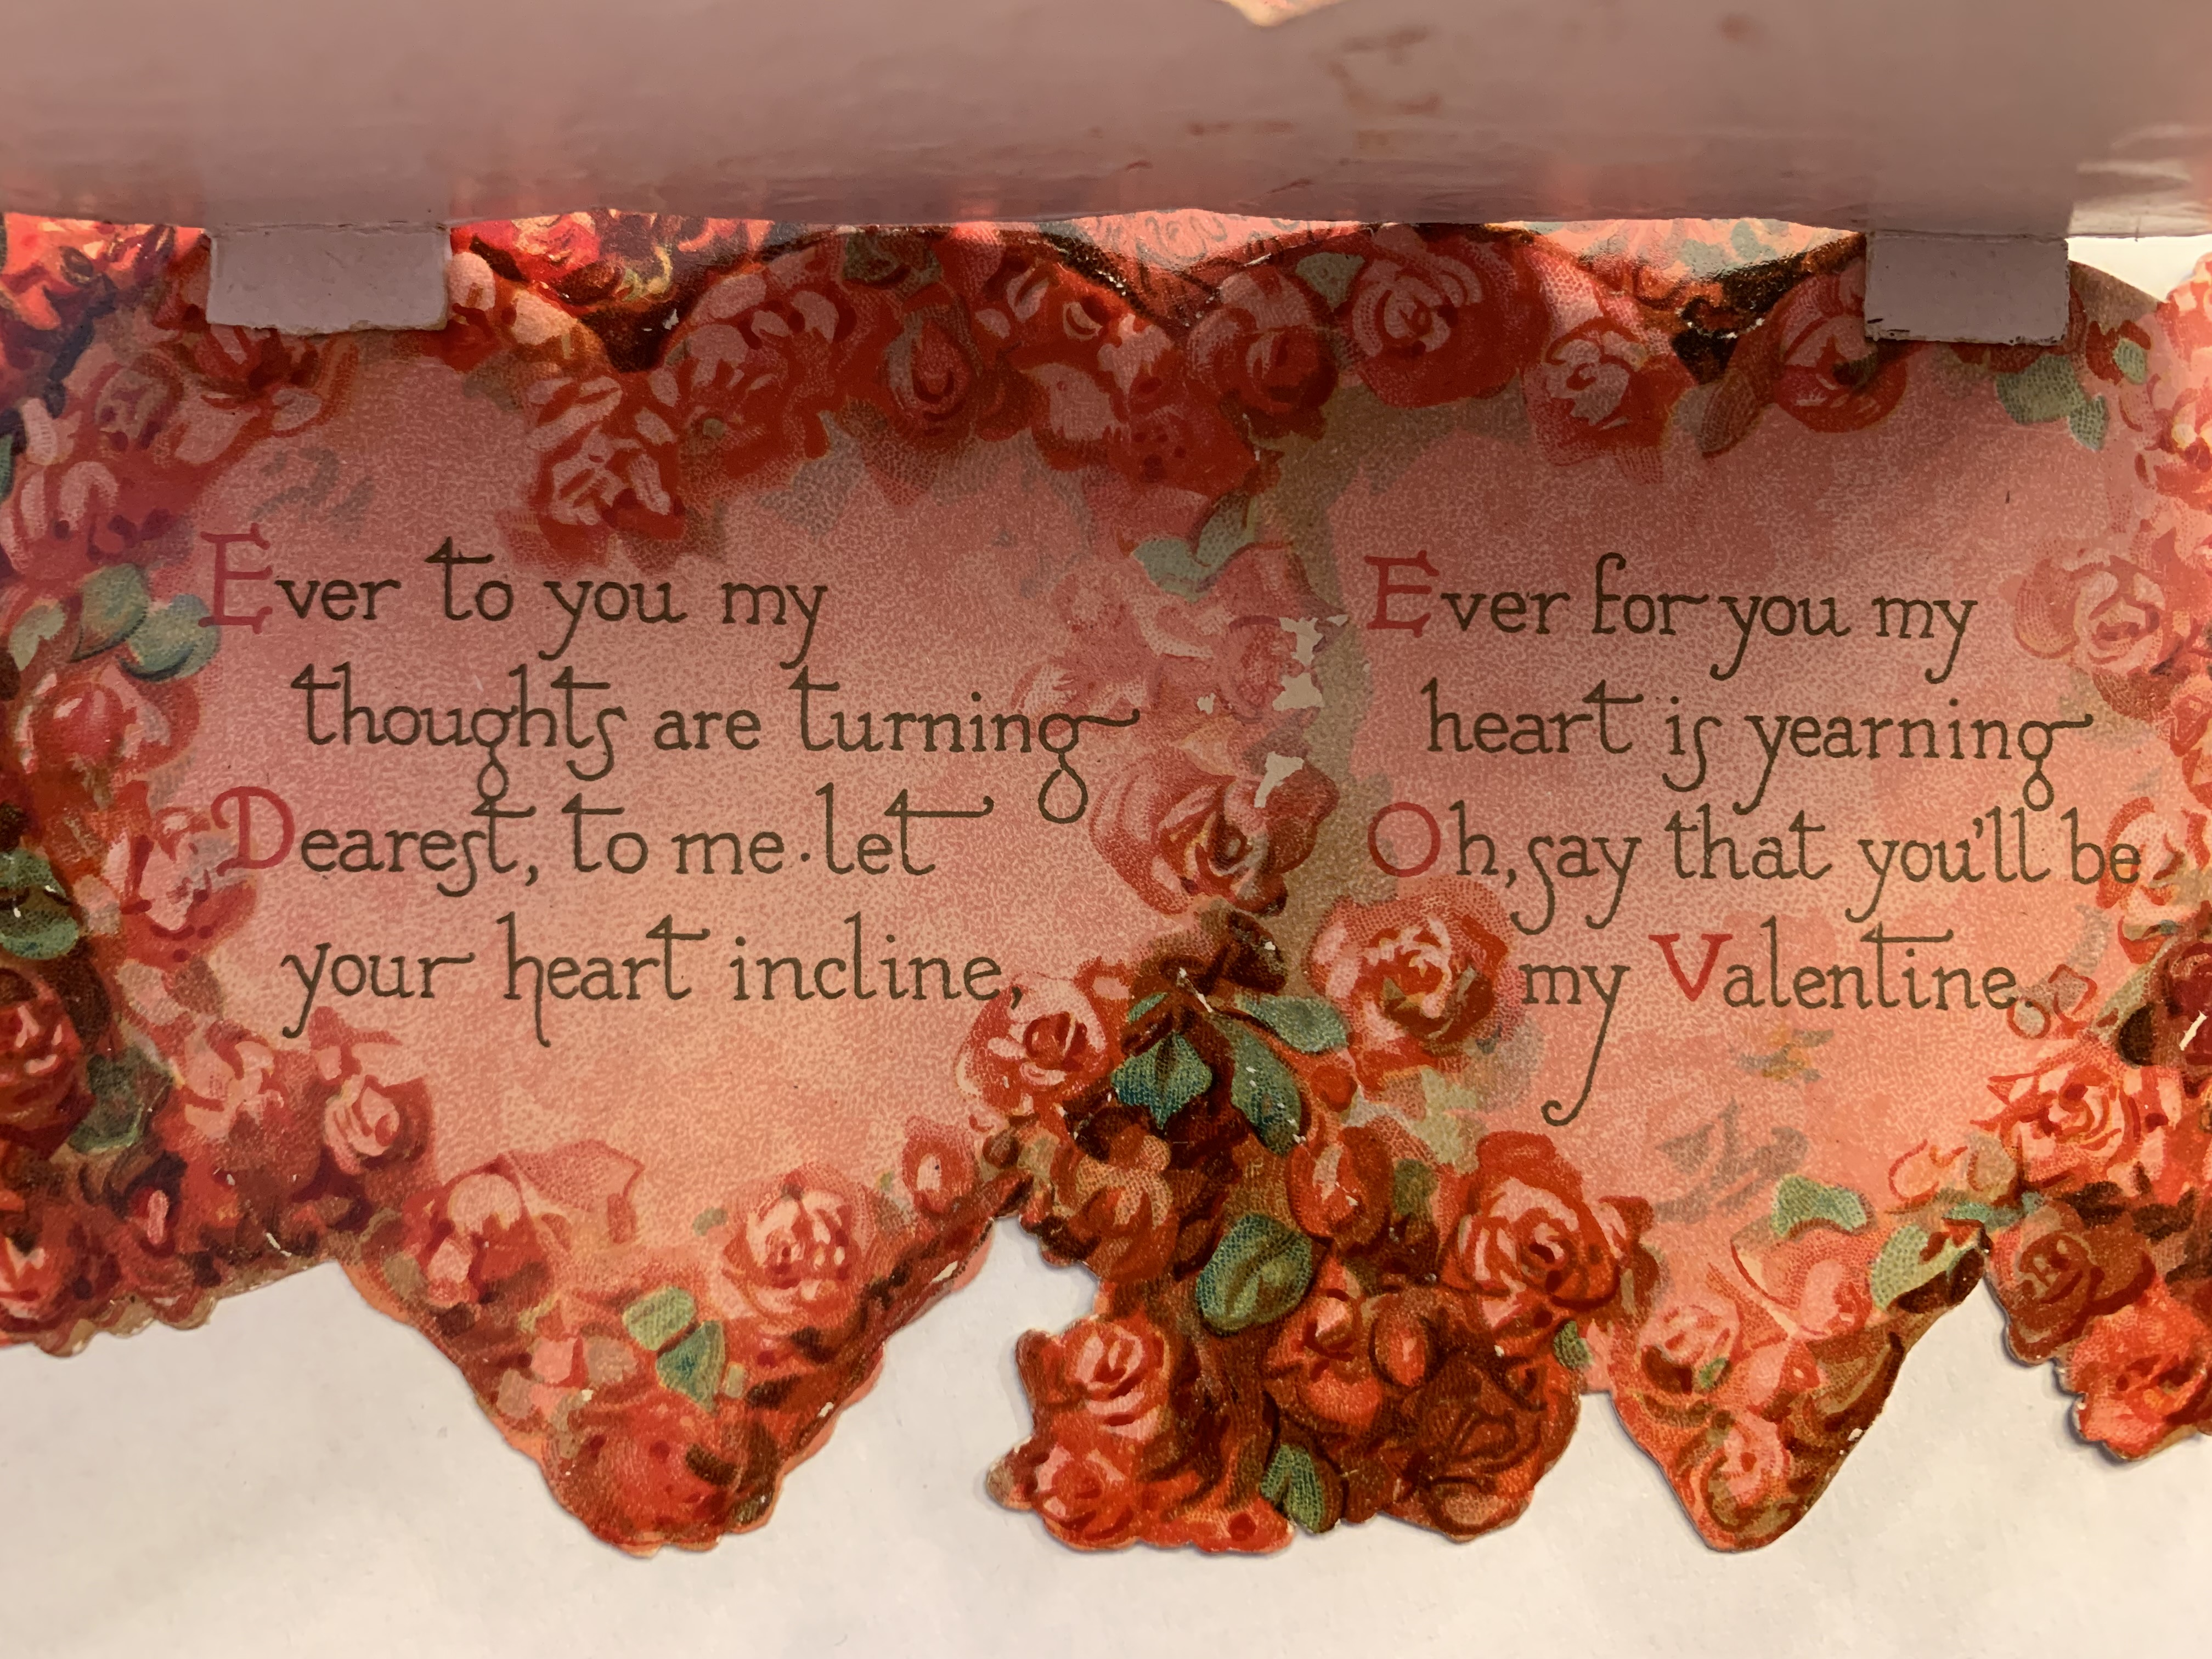 Ever to you my
thoughts are turning
Dearest, to me·let
your heart incline,
Ever for you my
heart is yearning
Oh, say that you'll be
my Valentine.